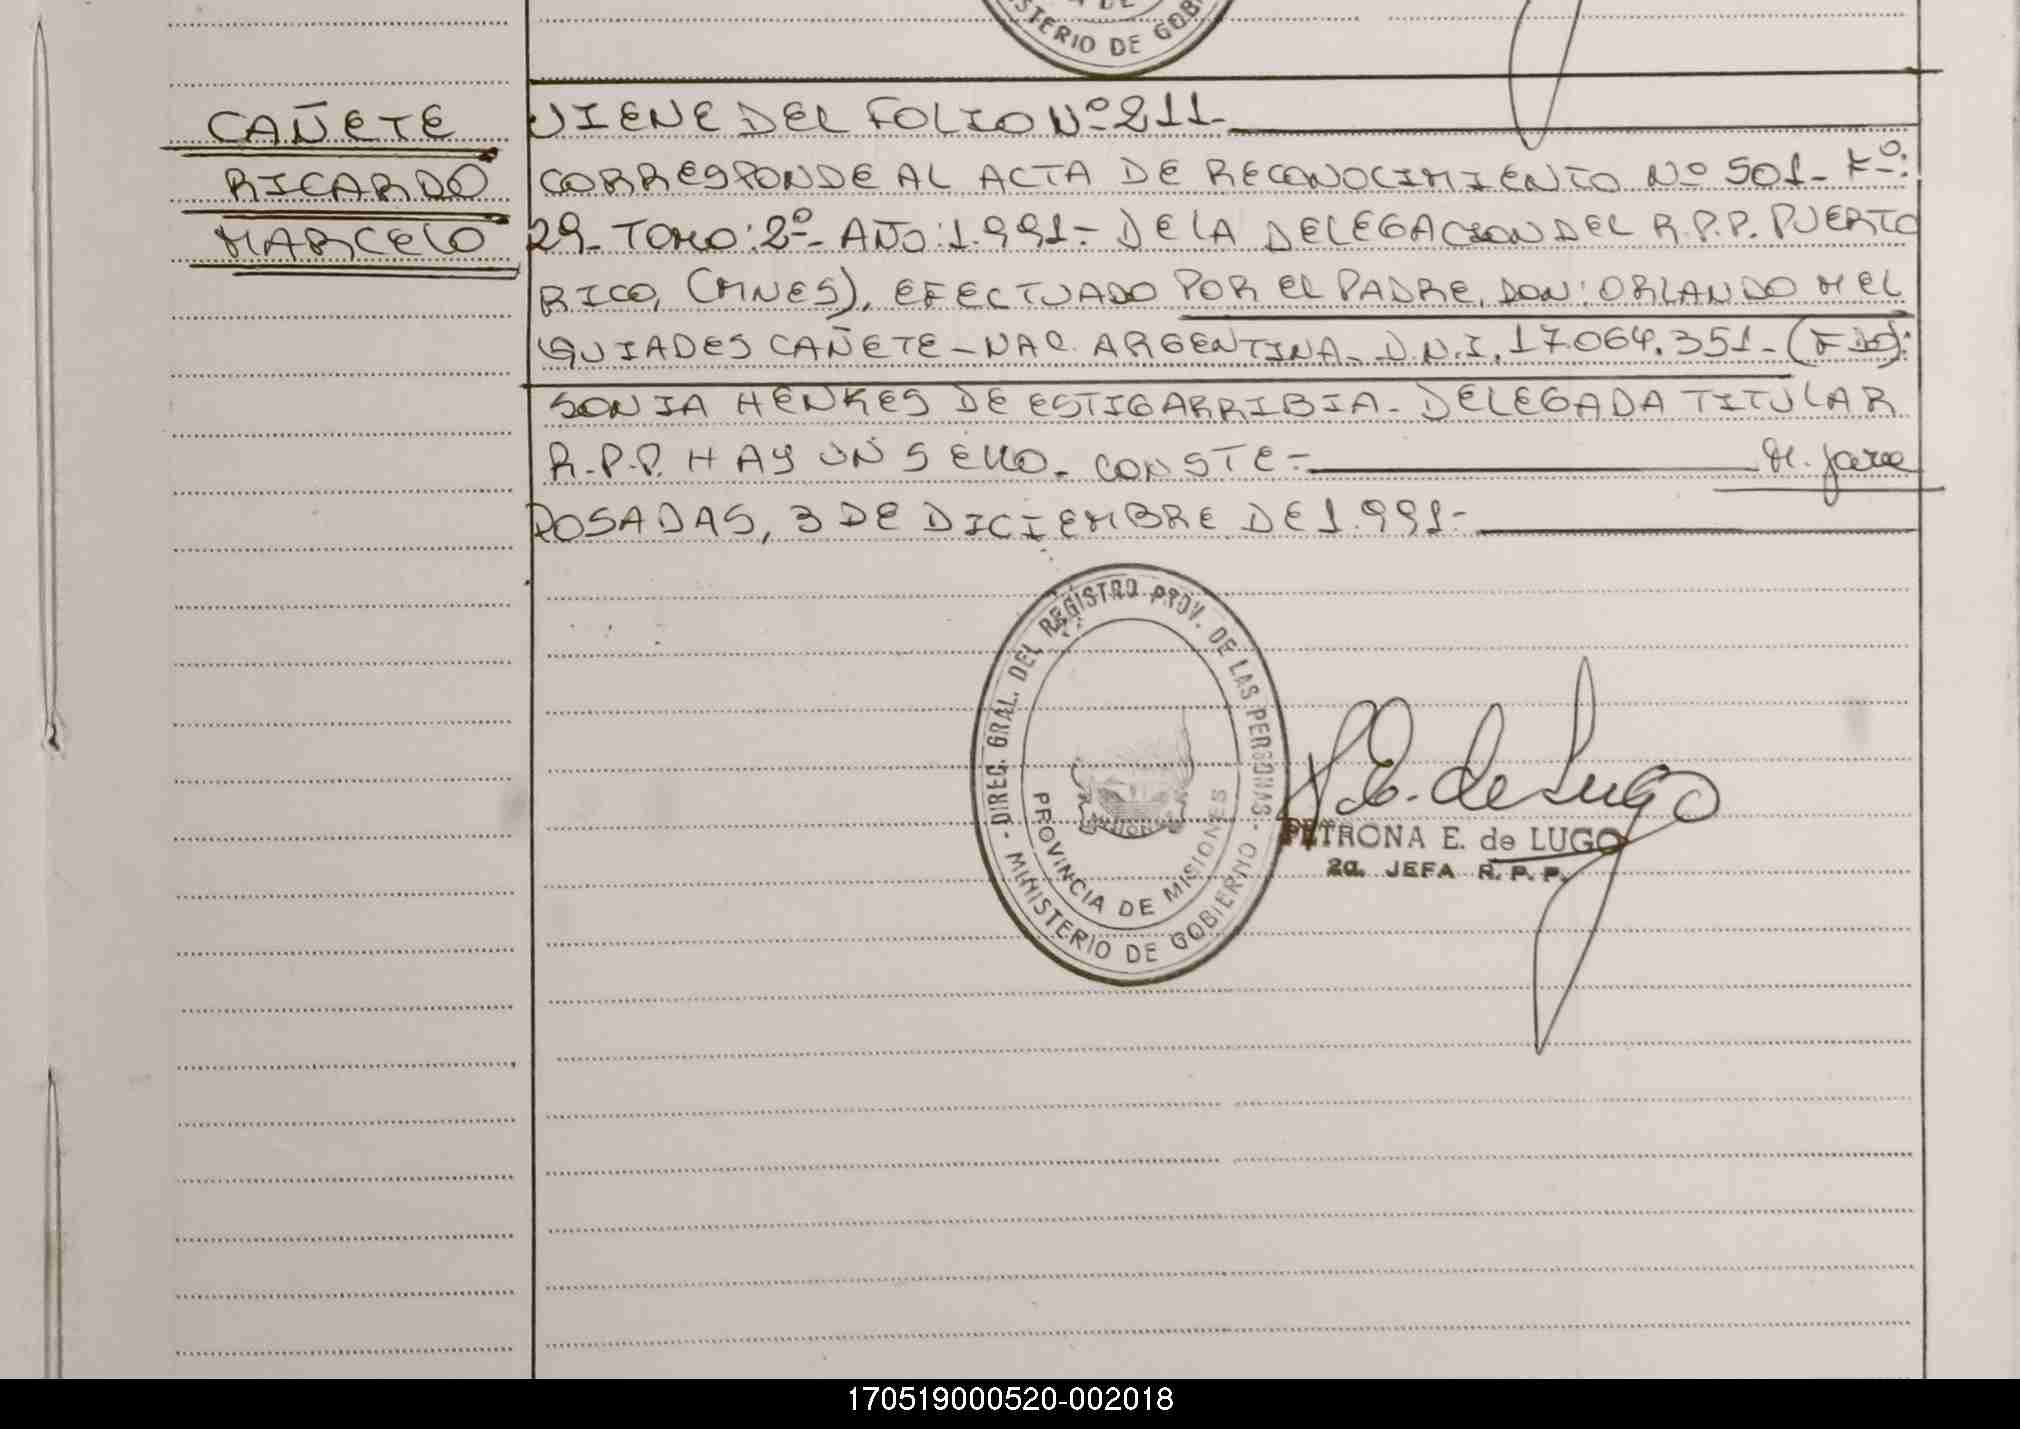 STERIO DE GOB
CAÑETE
RICARDO
MARCELO
VIENE DEL FOLIO Nº 211-
CORRESPONDE AL ACTA DE RECONOCIMIENTO Nº 501- Fº:
29- TOMO: 2º- AÑO: 1.991- DE LA DELEGACION DEL R.P.P. PUERTO
RICO, (MNES), EFECTUADO POR EL PADRE, DON: ORLANDO MEL
QUIADES CAÑETE - NAC. ARGENTINA- D.N.I. 17.064.351- (FDO):
SONIA HENKES DE ESTIGARRIBIA- DELEGADA TITULAR
R.P.P. HAY UN SELLO- CONSTE-
POSADAS, 3 DE DICIEMBRE DE 1.991-
- DIREC. GRAL. DEL REGISTRO PROV. DE LAS PERSONAS -
MINISTERIO DE GOBIERNO
PROVINCIA DE MISIONES
E. de Lugo
PETRONA E. de LUGO
2a. JEFA R.P.P.
170519000520-002018